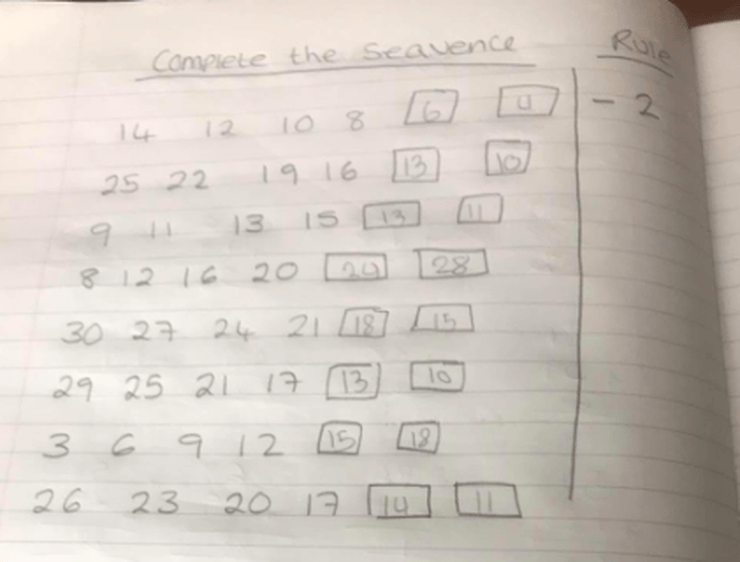 Complete the Seauence Rule
14 12 10 8 6 4 - 2
25 22 19 16 13 10
9 11 13 15 13 11
8 12 16 20 24 28
30 27 24 21 18 15
29 25 21 17 13 10
3 6 9 12 15 18
26 23 20 17 14 11